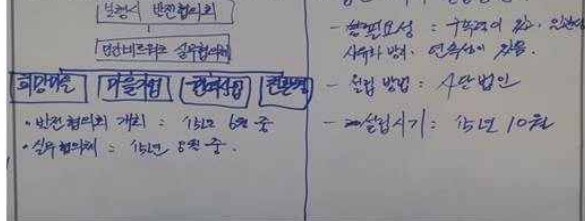 발전협의회
민간네트워크 실무협의체
희망마을 마을기업
• 발전협의회 개최 : 15년 6월 중
• 실무협의체 : 15년 5월 중.
- 필요성 : 구속력이 있고,
사유화 방지, 연속성이 있음.
- 설립 방법 : 사단법인
- 설립시기 : 15년 10월